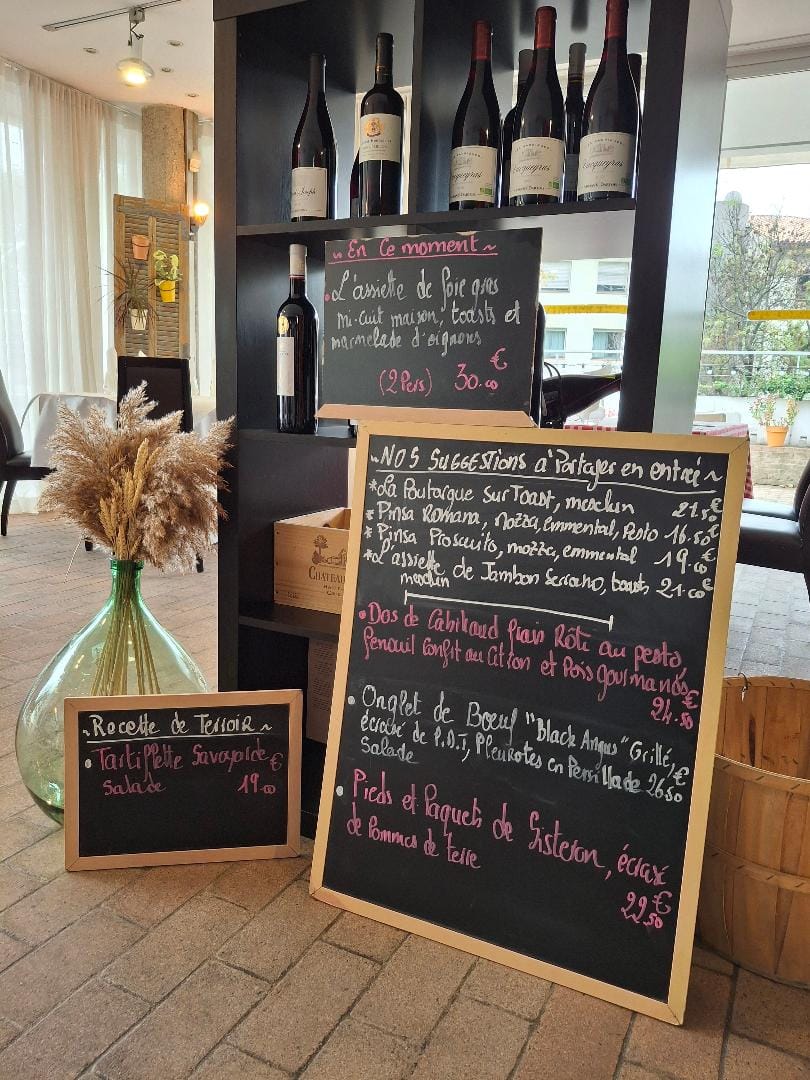 Vacqueyras
Vacqueyras
CHATEAU
~ En Ce moment ~
• L'assiette de foie gras
mi-cuit maison, toasts et
marmelade d'oignons
(2 Pers) 30.00 €
~ NOS SUGGESTIONS à Partager en entrée ~
* La Poutargue sur Toast, mesclun 21.50 €
* Pinsa Romana, Mozza, emmental, Pesto 16.50 €
* Pinsa Proscuito, mozza, emmental 19.00 €
* L'assiette de Jambon Serrano, toasts 21.00 €
mesclun
• Dos de Cabillaud frais Rôti au pesto,
fenouil confit au Citron et Pois gourmands
24.50 €
• Onglet de Boeuf "Black Angus" Grillé,
écrasé de P.D.T, Pleurotes en Persillade 26.50 €
Salade
• Pieds et Paquets de Sisteron, écrasé
de Pommes de terre
22.50 €
~ Recette de Terroir ~
• Tartiflette Savoyarde €
Salade 19.00